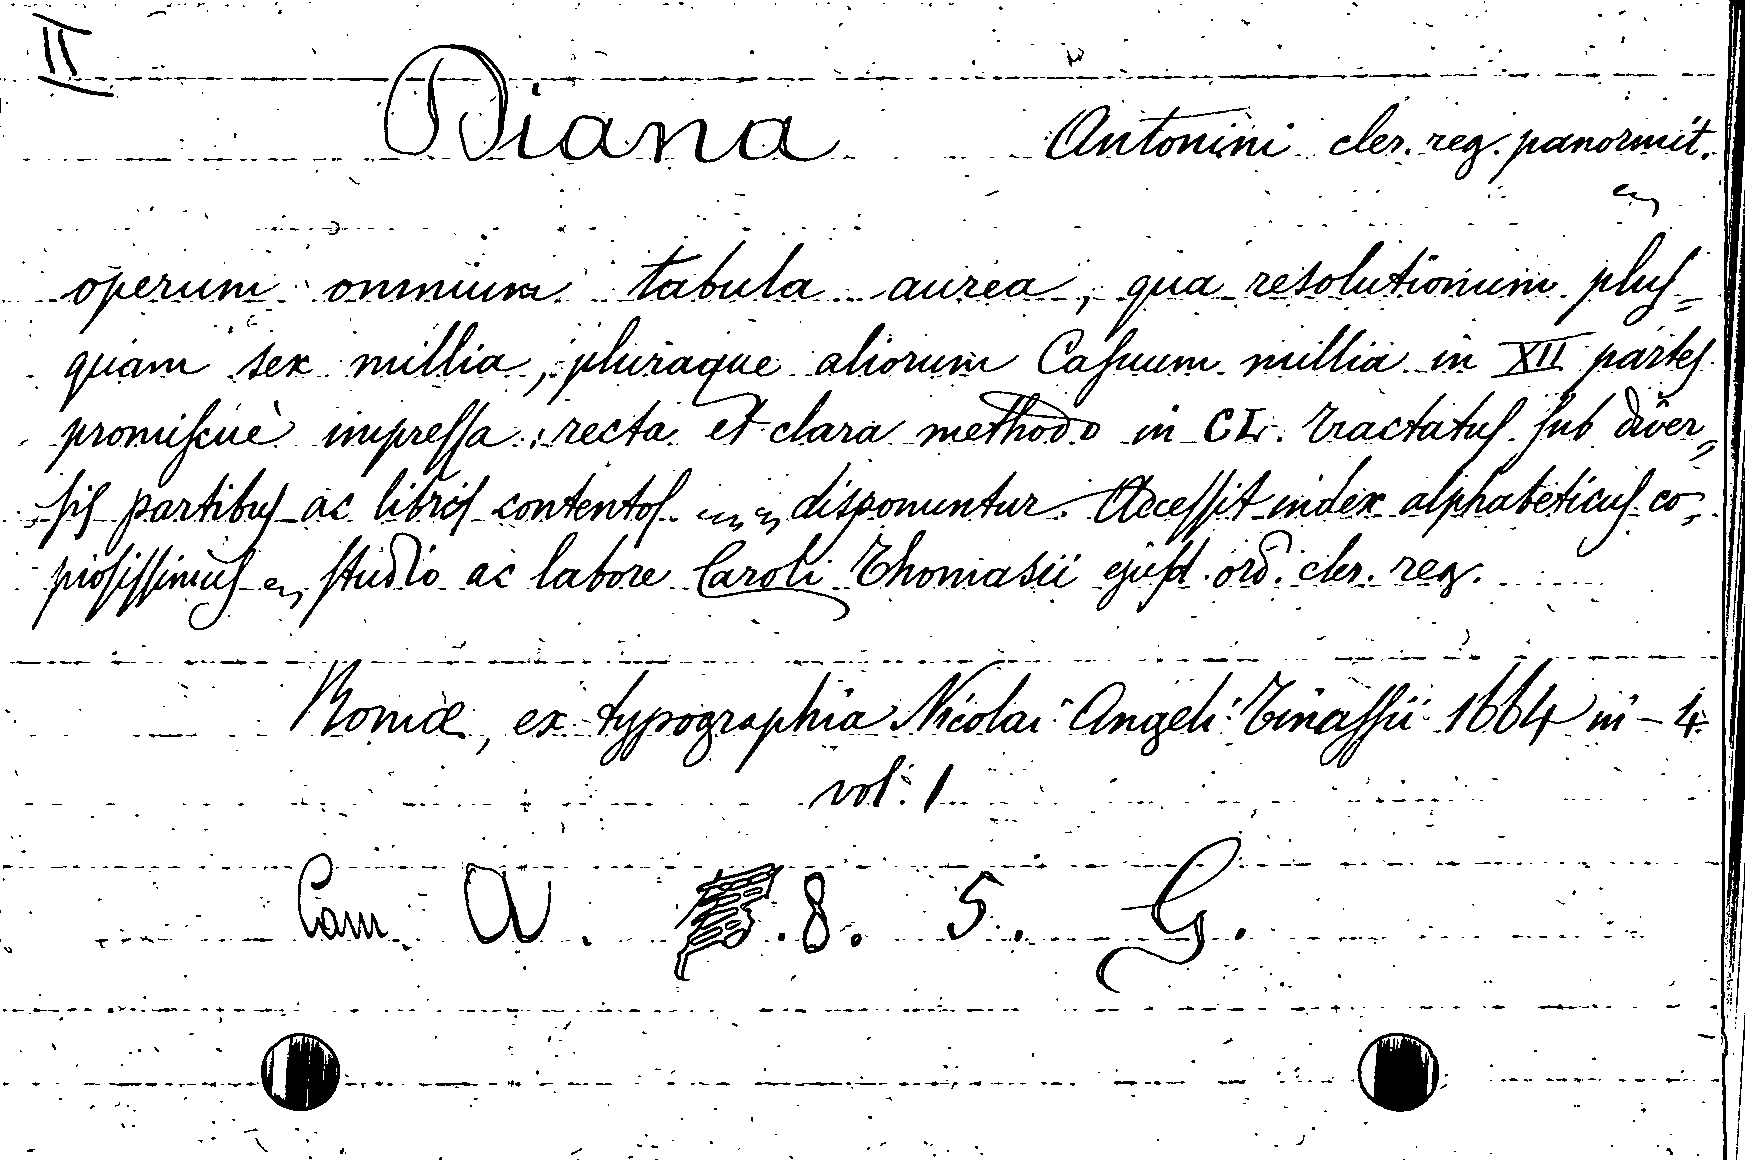 II
Diana Antonini cler. reg. panormit.
operum omnium tabula aurea, qua resolutionum plus=
quam sex millia, pluraque aliorum Casuum millia in XII partes
promiscuè impressa: recta et clara methodo in CL. tractatus sub diver„
sis partibus ac libris contentos disponuntur. Accessit index alphabeticus co„
piosissimus studio ac labore Caroli Thomasii ejusd. ord. cler. reg.
Romæ, ex typographia Nicolai Angeli Tinassii 1664 in-4.
vol: 1
Cam A. .8. 5. G.